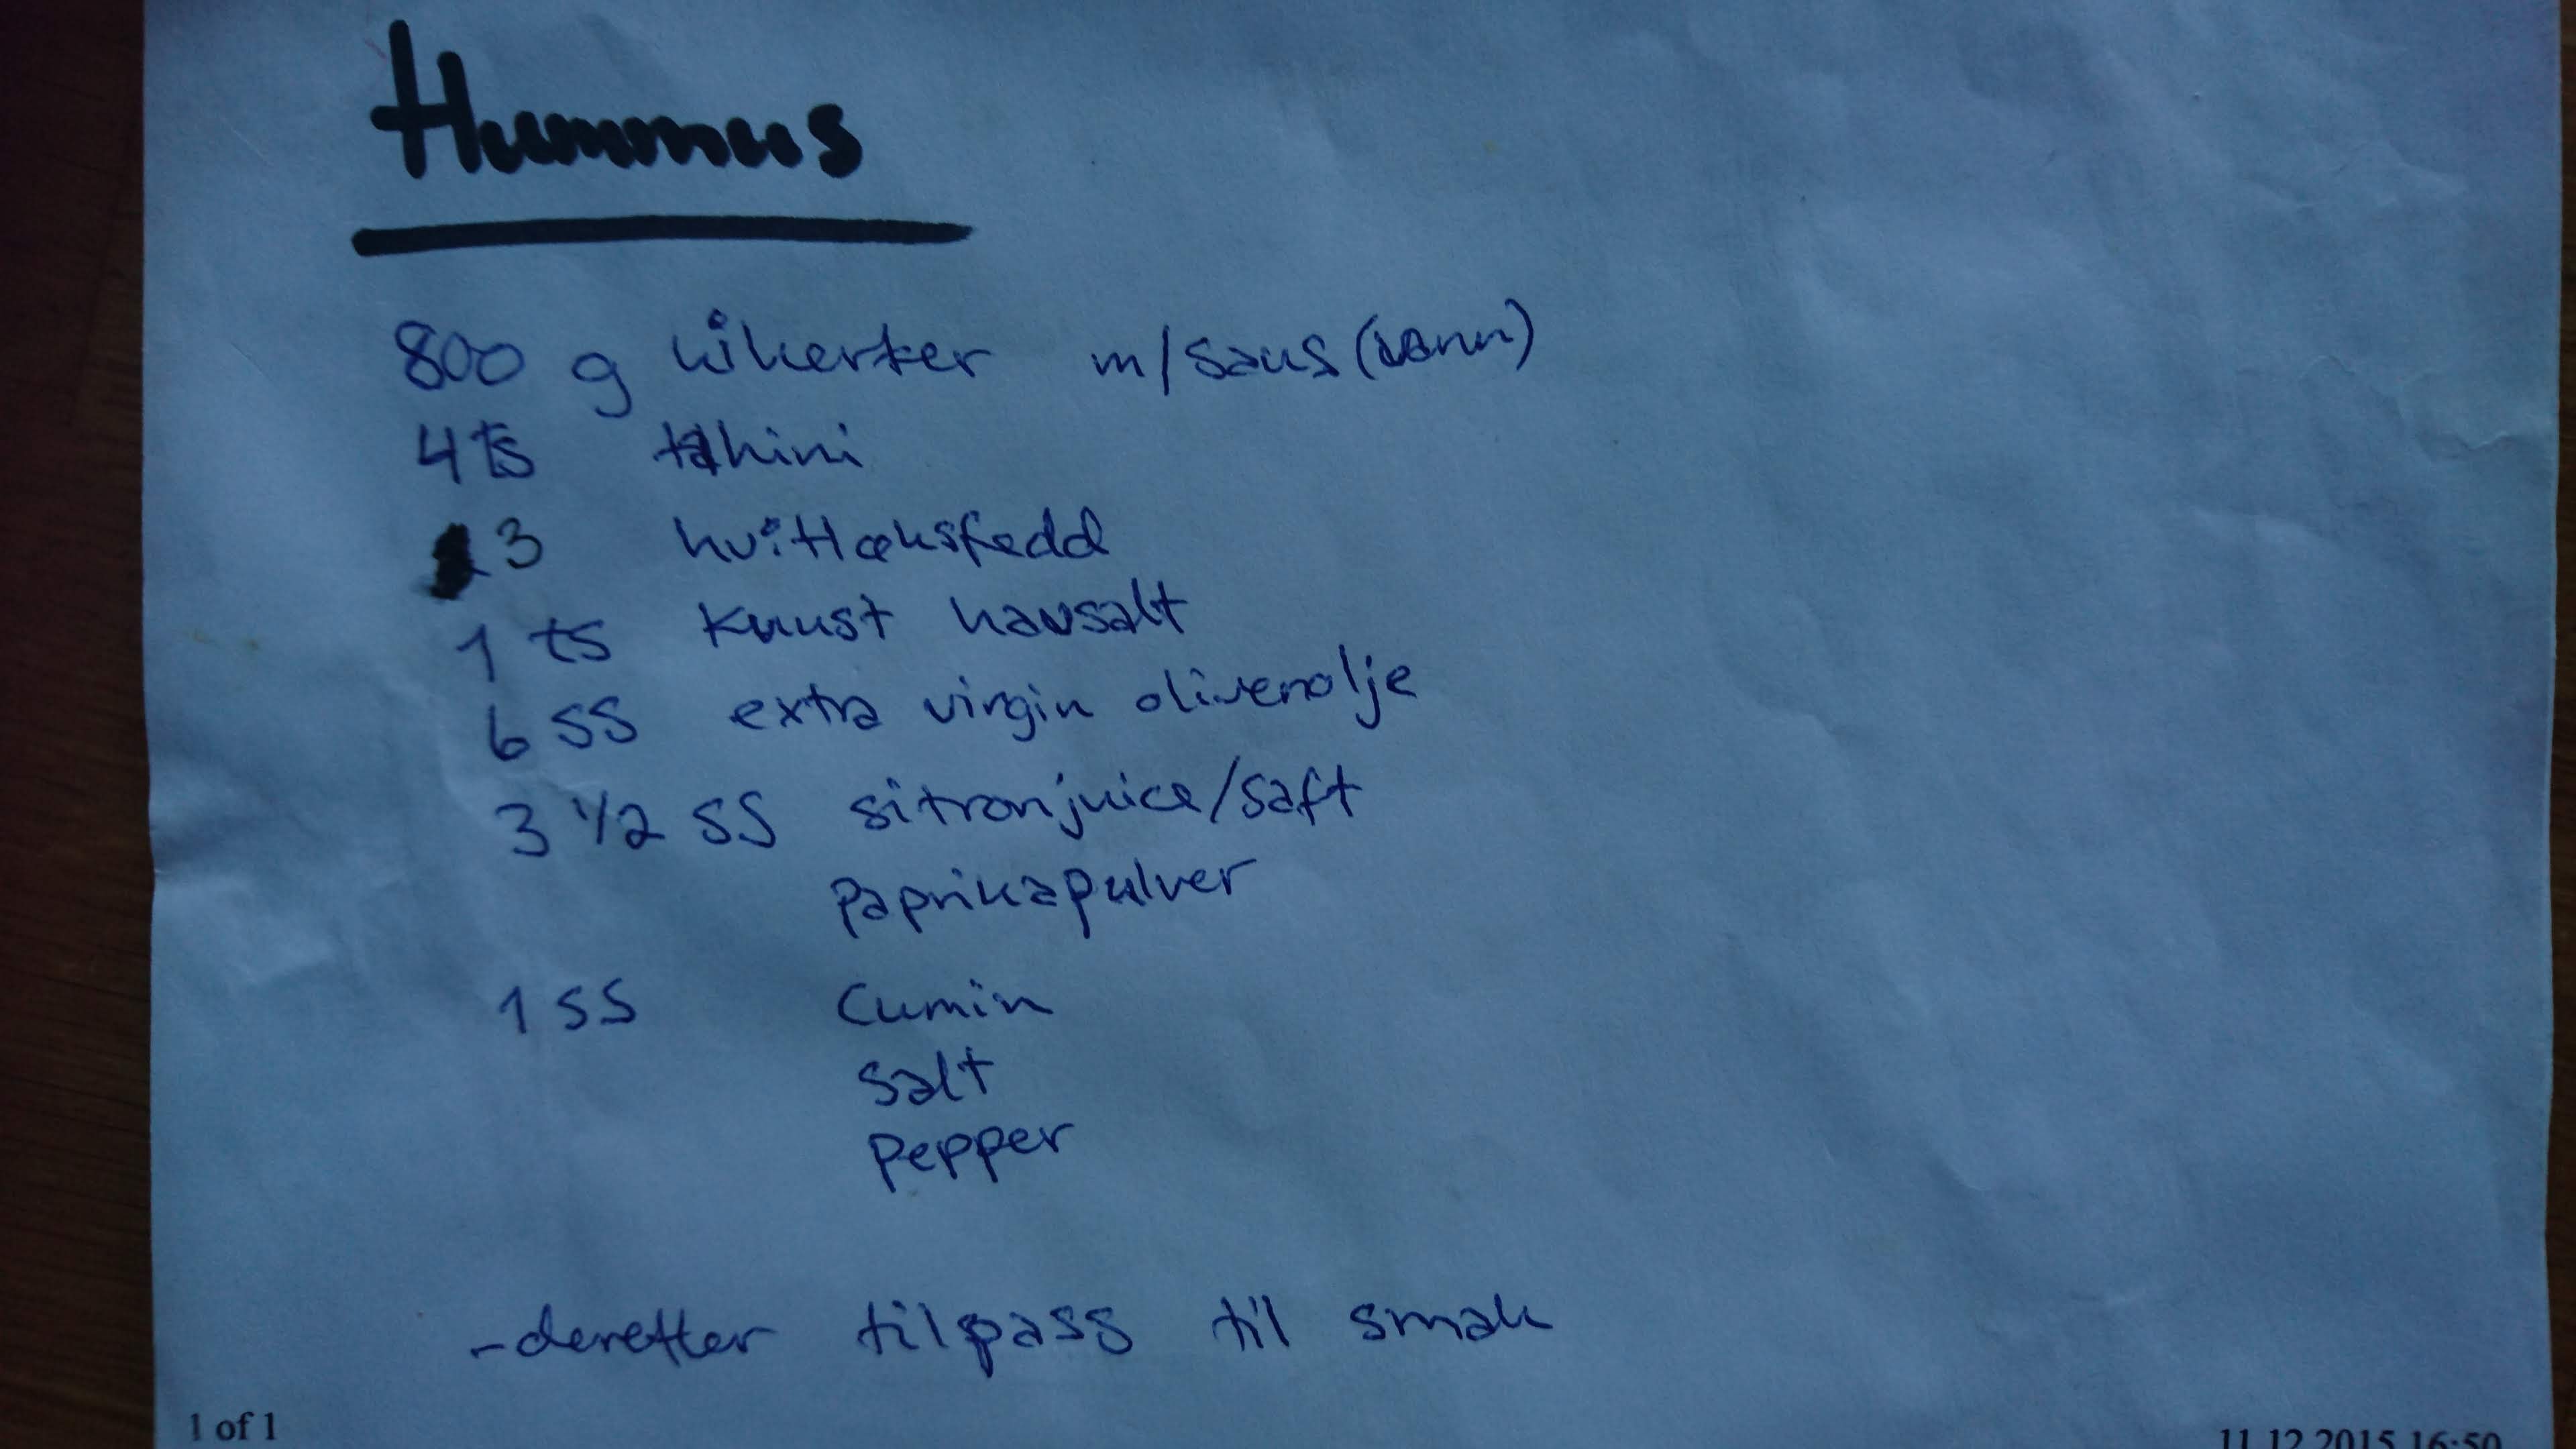 Hummus
800 g kikerter m/saus (vann)
4 ts tahini
3 hvitløksfedd
1 ts knust havsalt
6 ss extra virgin olivenolje
3 1/2 ss sitronjuice/saft
paprikapulver
1 ss Cumin
salt
pepper
-deretter tilpass til smak
1 of 1
11.12.2015 16:50